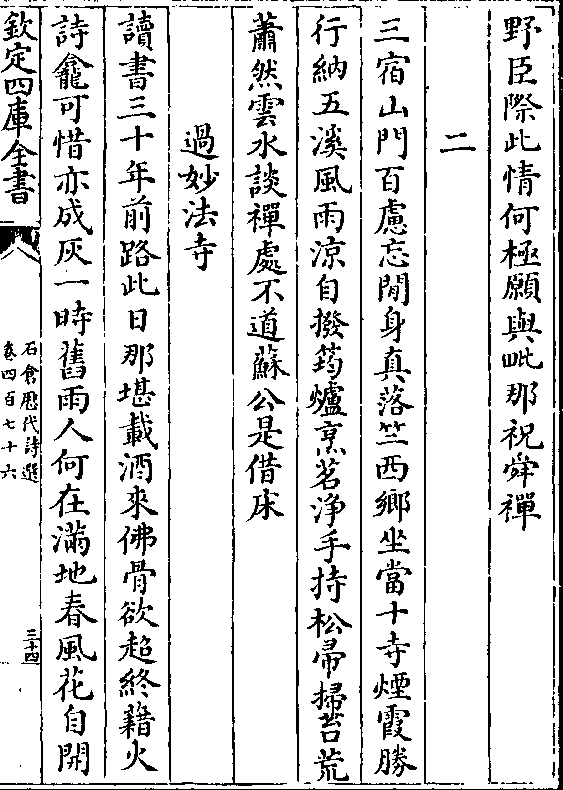 野臣際此情何極願與毗那祝舜禪
二
三宿山門百慮忘閒身真落竺西鄉坐當十寺煙霞勝
行納五溪風雨涼自撥筠爐烹茗浄手持松帚掃苔荒
蕭然雲水談禪處不道蘇公是借牀
過妙法寺
讀書三十年前路此日那堪載酒來佛骨欲超終藉火
詩龕可惜亦成灰一時舊雨人何在滿地春風花自開
欽定四庫全書
石倉歴代詩選
卷四百七十六
三十四